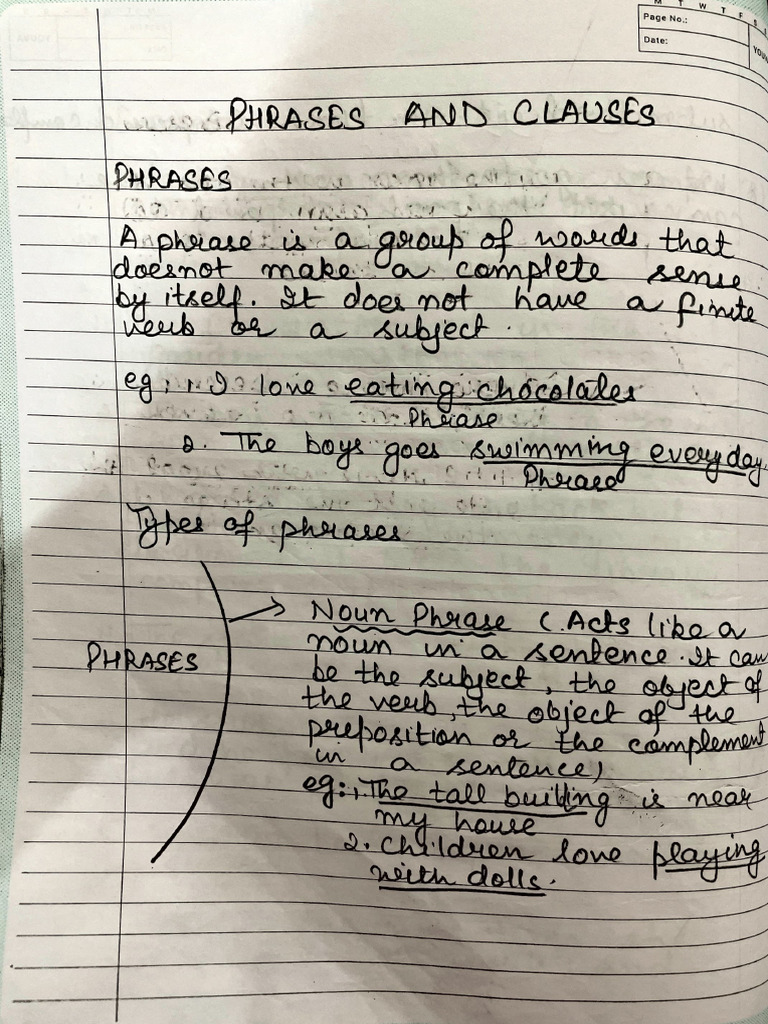 M T W T F S
Page No.:
Date:
YOUV
PHRASES AND CLAUSES
PHRASES
A phrase is a group of words that
doesnot make a complete sense
by itself. It does not have a finite
verb or a subject.
eg: 1. I love eating chocolates
Phrase
2. The boys goes swimming everyday.
Phrase
Types of phrases
PHRASES
Noun Phrase (Acts like a
noun in a sentence. It can
be the subject, the object of
the verb, the object of the
preposition or the complement
in a sentence)
eg: 1. The tall building is near
my house
2. Children love playing
with dolls.